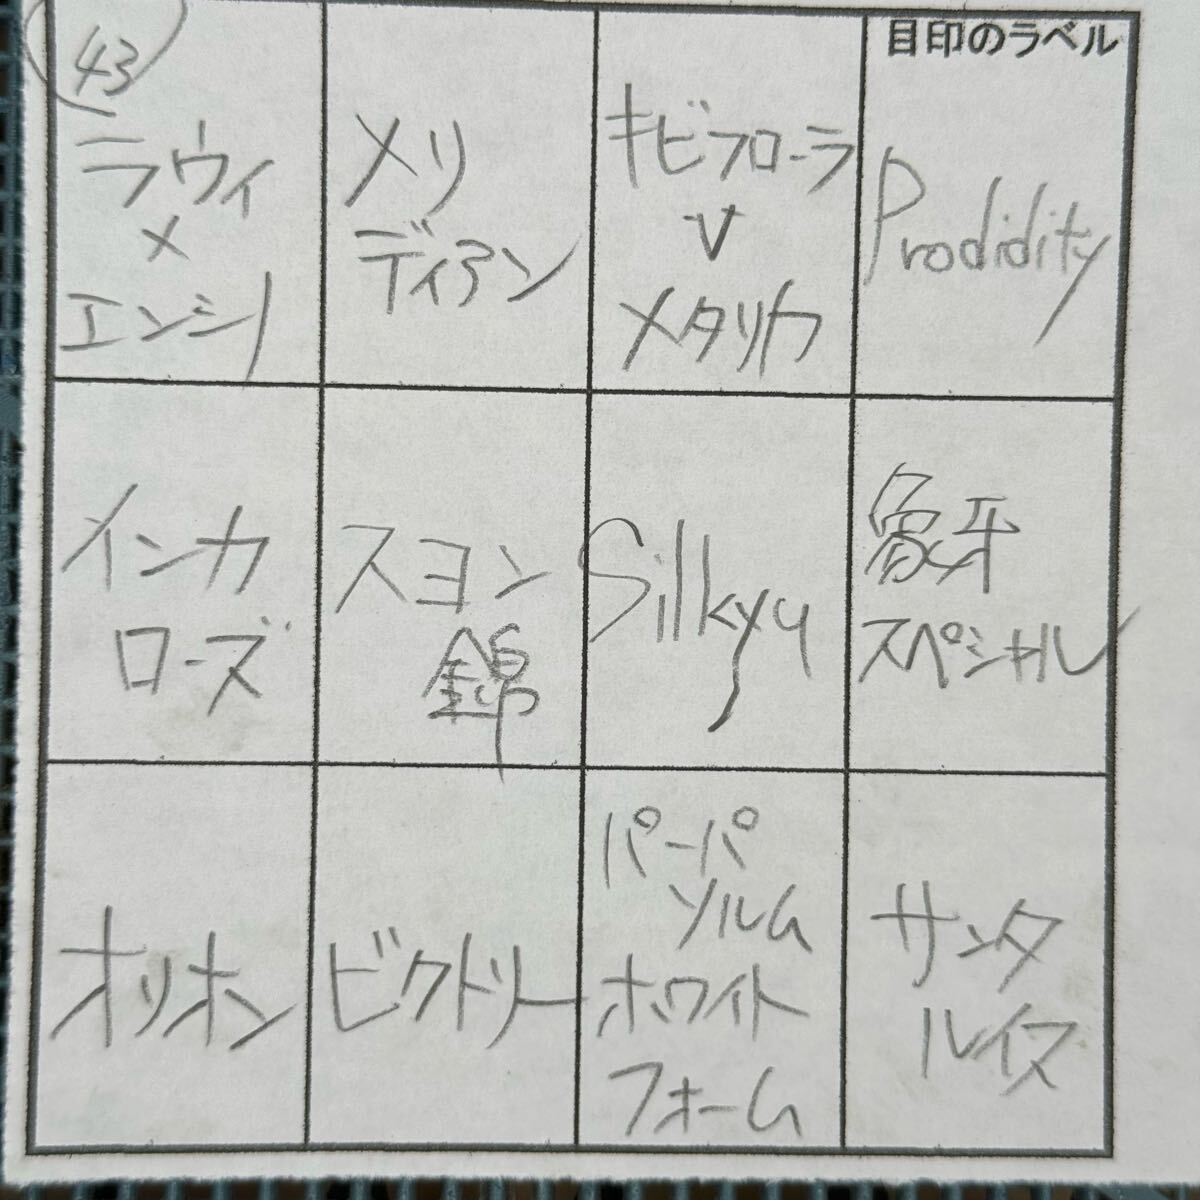 43
ラウィ
×
エンシノ
メリ
ディアン
キビフローラ
V
メタリカ
目印のラベル
Prodidity
インカ
ローズ
スヨン
錦
Silkyq
象牙
スペシャル
オリホン
ビクトリー
パーパ
ソルム
ホワイト
フォーム
サンタ
ルイス